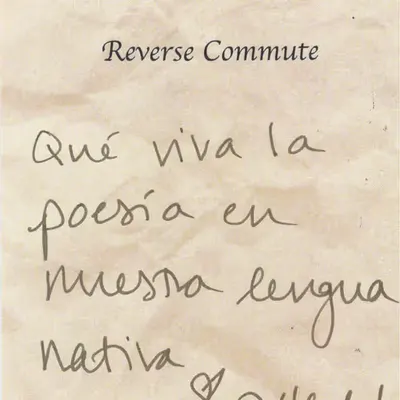 Reverse Commute
Qué viva la
poesía en
nuestra lengua
nativa